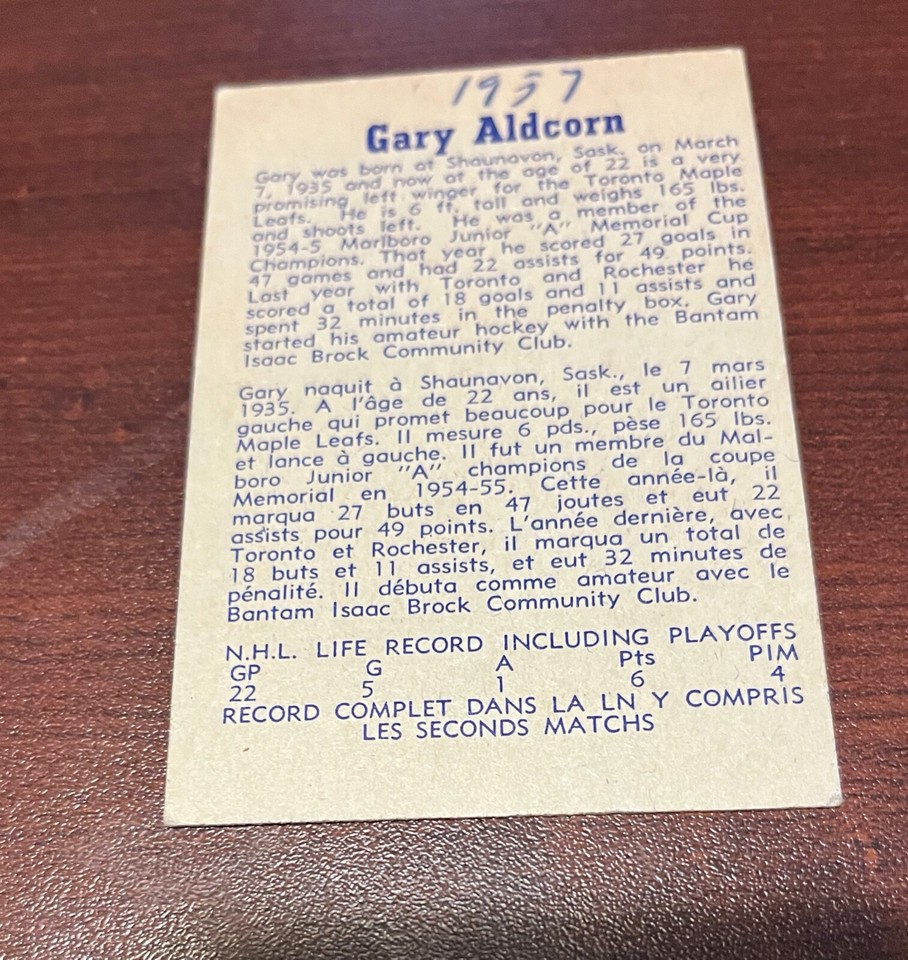 1957
Gary Aldcorn
Gary was born at Shaunavon, Sask. on March
7, 1935 and now at the age of 22 is a very
promising left winger for the Toronto Maple
Leafs. He is 6 ft. tall and weighs 165 lbs.
and shoots left. He was a member of the
1954-5 Marlboro Junior "A" Memorial Cup
Champions. That year he scored 27 goals in
47 games and had 22 assists for 49 points.
Last year with Toronto and Rochester he
scored a total of 18 goals and 11 assists and
spent 32 minutes in the penalty box. Gary
started his amateur hockey with the Bantam
Isaac Brock Community Club.
Gary naquit à Shaunavon, Sask., le 7 mars
1935. A l'âge de 22 ans, il est un ailier
gauche qui promet beaucoup pour le Toronto
Maple Leafs. Il mesure 6 pds., pèse 165 lbs.
et lance à gauche. Il fut un membre du Mal-
boro Junior "A" champions de la coupe
Memorial en 1954-55. Cette année-là, il
marqua 27 buts en 47 joutes et eut 22
assists pour 49 points. L'année dernière, avec
Toronto et Rochester, il marqua un total de
18 buts et 11 assists, et eut 32 minutes de
pénalité. Il débuta comme amateur avec le
Bantam Isaac Brock Community Club.
N.H.L. LIFE RECORD INCLUDING PLAYOFFS
GP G A Pts PIM
22 5 1 6 4
RECORD COMPLET DANS LA LN Y COMPRIS
LES SECONDS MATCHS